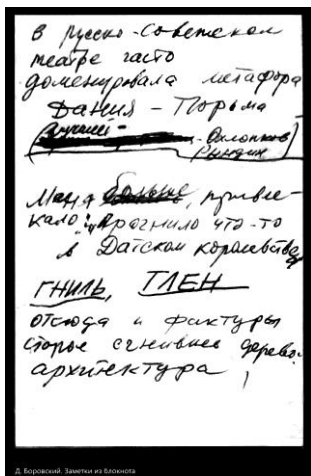 В русско-советском
театре часто
доменировала метафора
Дания – Тюрьма
(лучший – Охлопков
Рындин)
Меня больше привле-
кало: "Прогнило что-то
в Датском королевстве"
ГНИЛЬ, ТЛЕН
отсюда и фактуры
старое сгнившее дерево.
архитектура
Д. Боровский. Заметки из блокнота